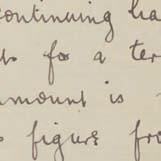 continuing ha
for a ter
amount is
figure fro